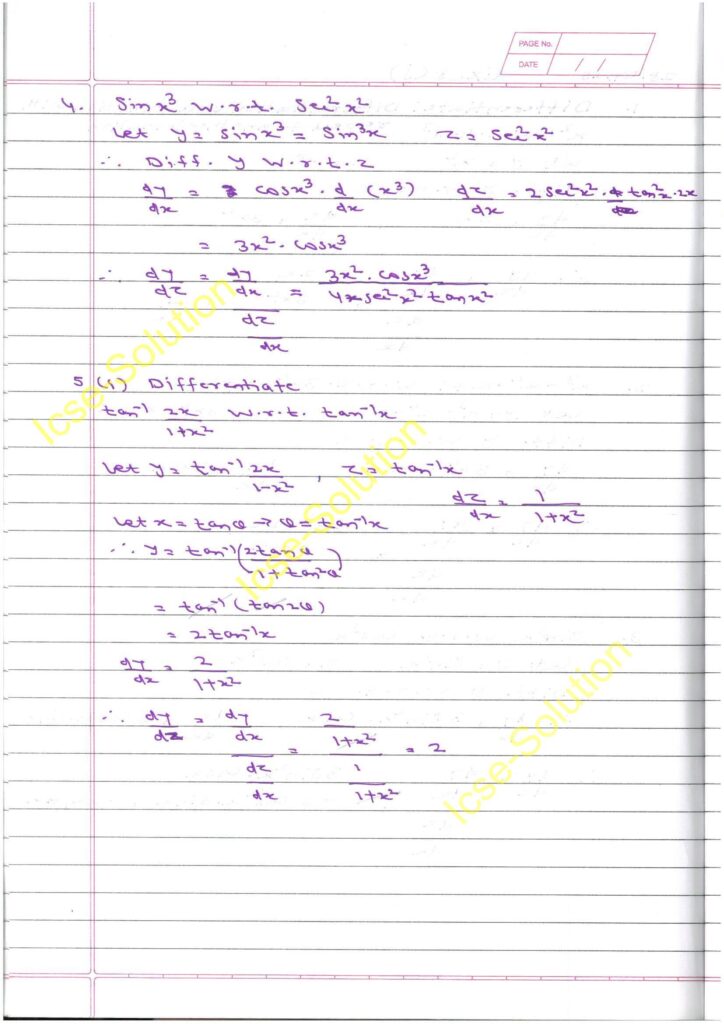 PAGE No.
DATE / /
4. Sin x³ w.r.t. Sec² x²
Let y = sin x³ = Sin³x z = Sec² x²
∴ Diff. y w.r.t. z
dy/dx = cos x³ · d/dx (x³) dz/dx = 2 sec² x² · tan² x · 2x
= 3x² · cos x³
∴ dy/dz = (dy/dx)/(dz/dx) = (3x² · cos x³)/(4x sec² x² tan x²)
5 (i) Differentiate
tan⁻¹ 2x/(1+x²) w.r.t. tan⁻¹x
Let y = tan⁻¹ 2x/(1-x²) , z = tan⁻¹x
dz/dx = 1/(1+x²)
Let x = tan θ → θ = tan⁻¹x
∴ y = tan⁻¹ (2 tan θ/(1 + tan²θ))
= tan⁻¹ (tan 2θ)
= 2 tan⁻¹x
dy/dx = 2/(1+x²)
∴ dy/dz = (dy/dx)/(dz/dx) = (2/(1+x²))/(1/(1+x²)) = 2
Icse-Solution
Icse-Solution
Icse-Solution